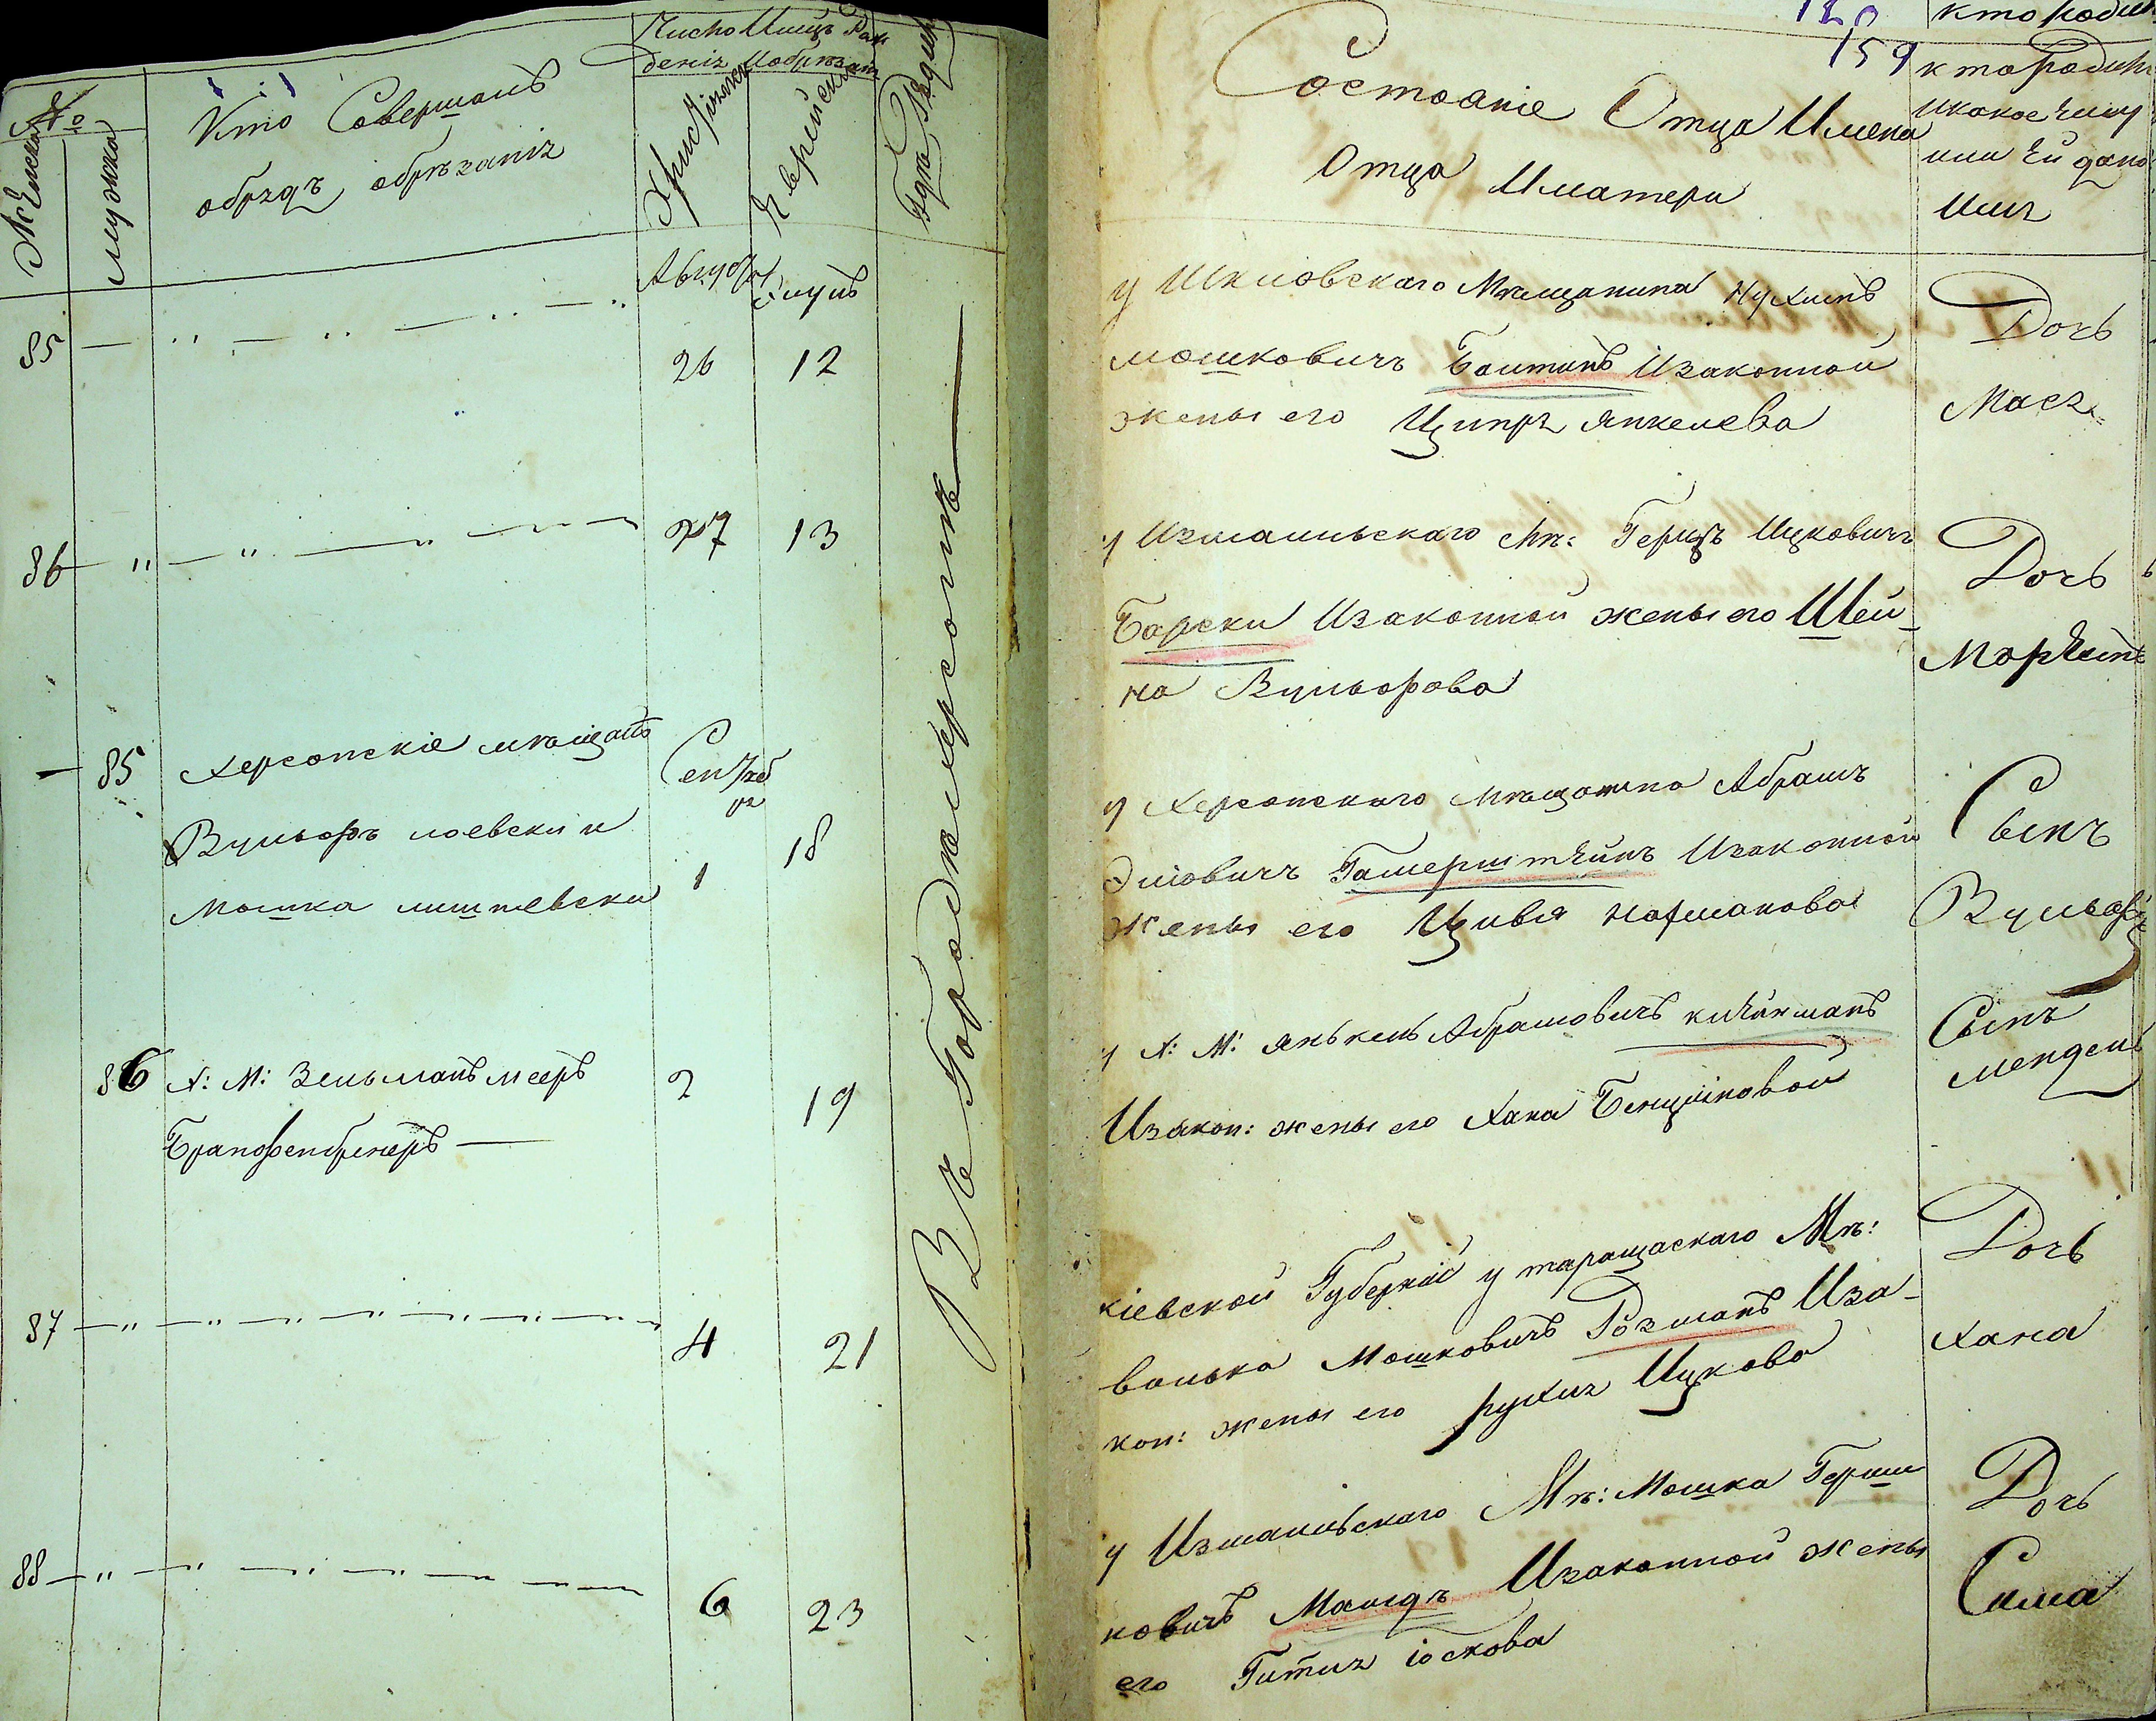 №
Женска
мужска
Кто Совершалъ
обрядъ обрѣзанія
Число Имцъ Рож
денія Иобрѣзан
Христіянск
Еврейски
Гдѣ Родился
Августъ
85
26
12
86
27
13
85
Херсонскіе мѣщанѣ
Сентяб
ря
Вульфъ лоевски и
Мошка лишневски
1
18
86
Х: М: Зельманъ мееръ
2
19
87
4
21
88
6
23
Въ Городѣ Херсонѣ
159
Состояніе Отца Имена
Отца Иматери
кто родил
кто Родил
Икакое Ему
или Ей дано
Имя
у Шкловскаго Мѣщанина Нухимъ
мошковичъ Изаконной
жены его Ципря янкелева
Дочь
Мася
у Измаильскаго Мѣ: Герцъ Ицковичъ
Барски Изаконной жены его Шей-
на Вульфова
Дочь
у Херсонскаго мѣщанина Абрамъ
Гамерштейнъ Изаконной
жены его Цивея нахманова
Сынъ
Вульфъ
у Х: М: янькель Абрамовичъ клейнманъ
Изакон: жены его Хана
Сынъ
мендель
кіевской Губерніи у таращаскаго Мѣ:
волька Мошковичъ Розманъ Иза-
кон: жены его рухля Ицкова
Дочь
хана
у Измаильскаго Мѣ: Мошка Герш
ковичъ Изаконной жены
его Гитля іоскова
Дочь
Сима